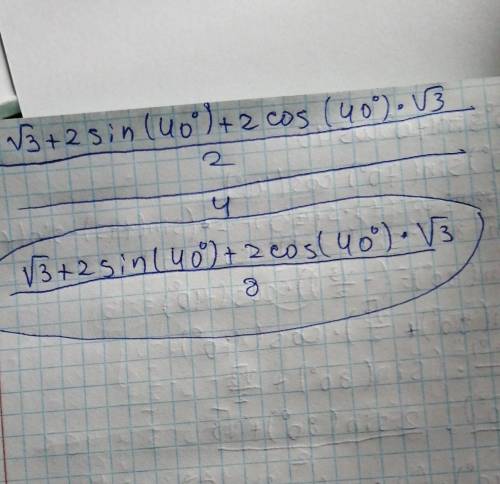 √3+2sin(40°)+2cos(40°)·√3
2
4
√3+2sin(40°)+2cos(40°)·√3
8